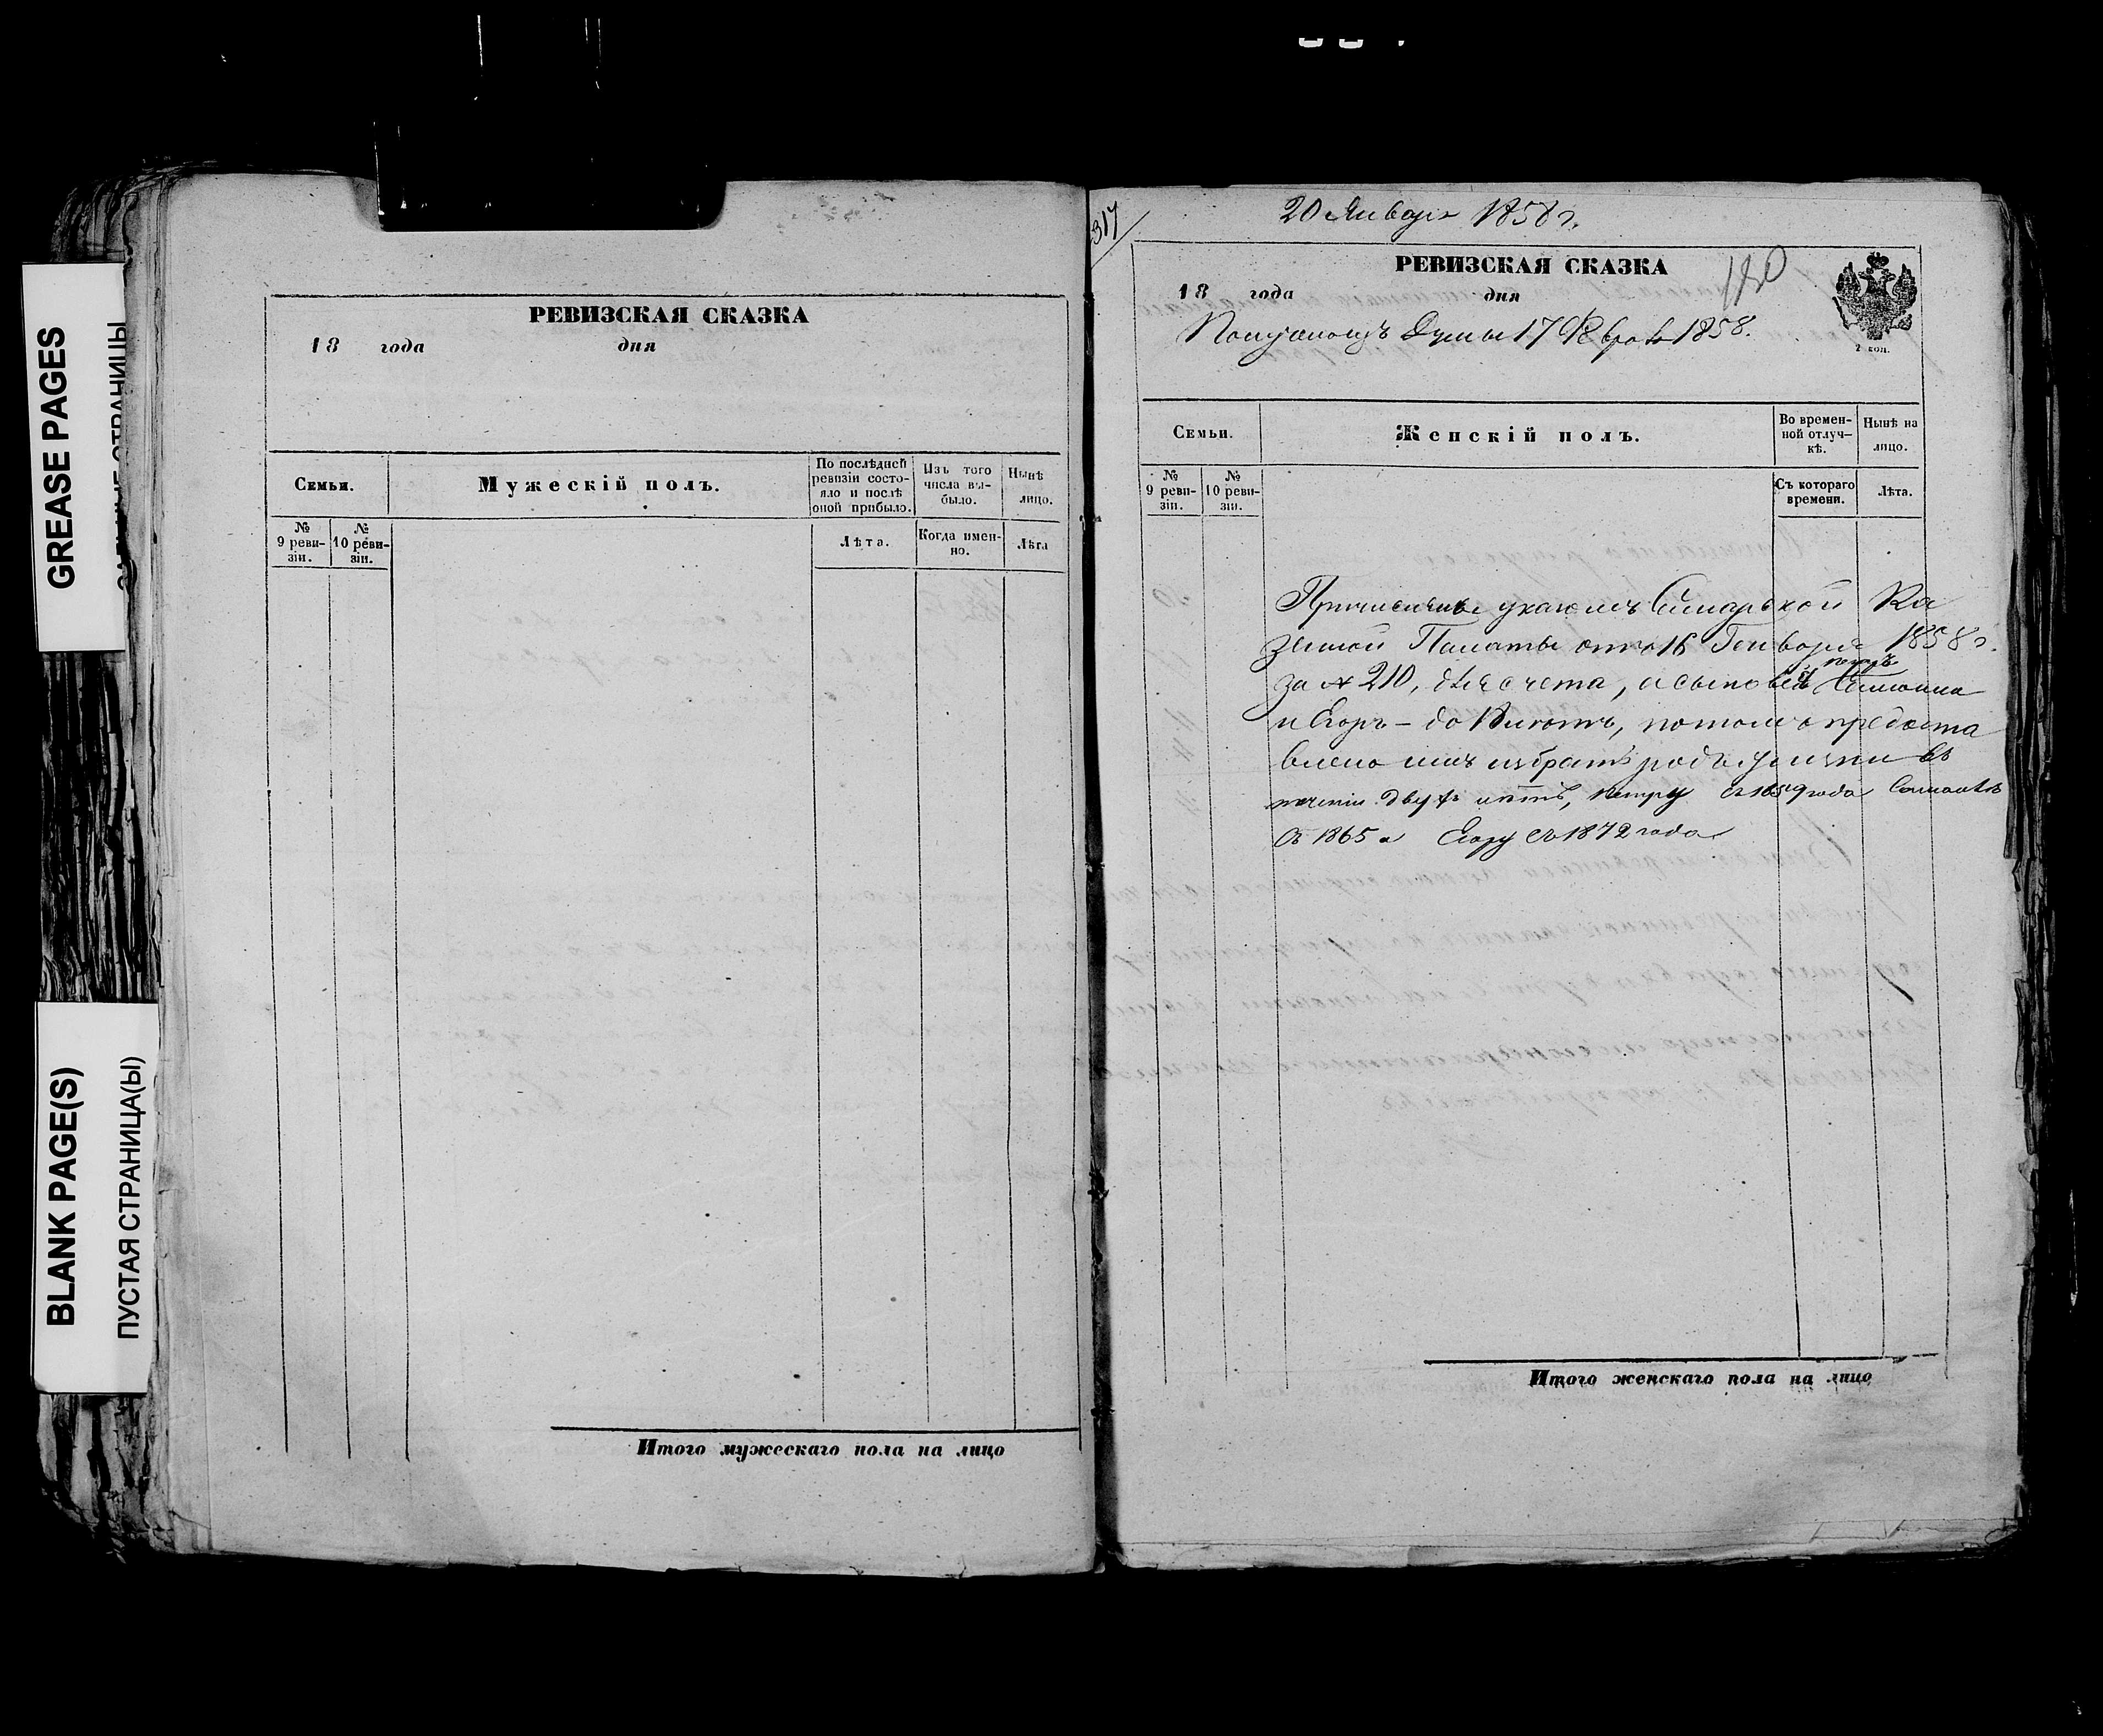 GREASE PAGES
BLANK PAGE(S)
ПУСТАЯ СТРАНИЦА(Ы)
РЕВИЗСКАЯ СКАЗКА
18 года дня
Семьи.
Мужескій полъ.
По послѣдней ревизіи состояло и послѣ оной прибыло.
Изъ того числа выбыло.
Нынѣ лицо.
№ 9 ревизіи.
№ 10 ревизіи.
Лѣта.
Когда именно.
Лѣта
Итого мужескаго пола на лицо
317
20 Января 1858 г.
РЕВИЗСКАЯ СКАЗКА
180
18 года дня
Думы 17 Февраля 1858.
2 коп.
Семьи.
Женскій полъ.
Во временной отлучкѣ.
Нынѣ на лицо.
№ 9 ревизіи.
№ 10 ревизіи.
Съ котораго времени.
Лѣта.
Причислены указомъ Самарской Ка
зенной Палаты отъ 16 Генваря 1858 г.
за № 210, счета, а сыновья Петръ
и Егоръ – до потому предоста
влено имъ избрать родъ жизни въ
теченіи двухъ лѣтъ, Петру съ 1859 года
съ 1865 а Егору съ 1872 года
Итого женскаго пола на лицо